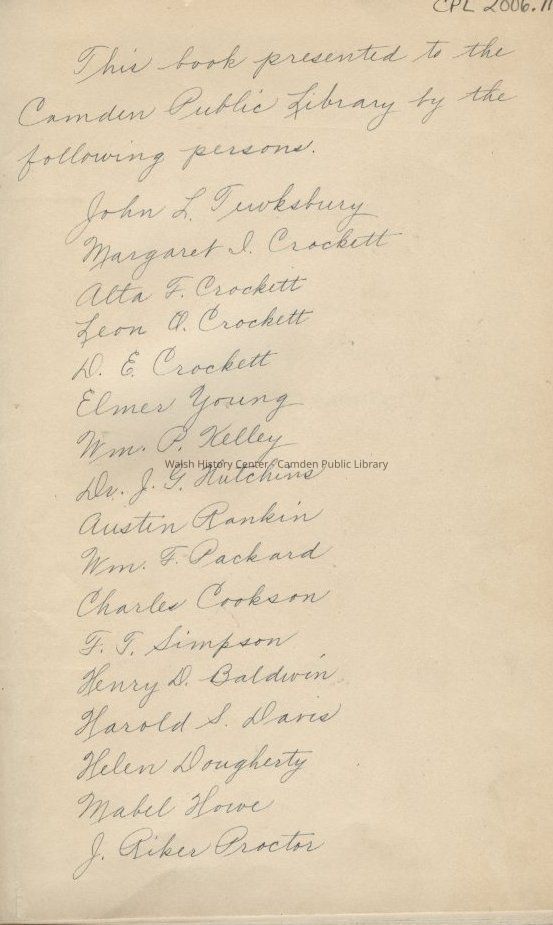 CPL 2006.11
This book presented to the
Camden Public Library by the
following persons.
John L. Tewksbury
Margaret I. Crockett
Alta F. Crockett
Leon O. Crockett
D. E. Crockett
Elmer Young
Wm. P. Kelley
Walsh History Center - Camden Public Library
Dr. J. G. Hutchins
Austin Rankin
Wm. F. Packard
Charles Cookson
F. T. Simpson
Henry D. Baldwin
Harold S. Davis
Helen Dougherty
Mabel Howe
J. Riker Proctor